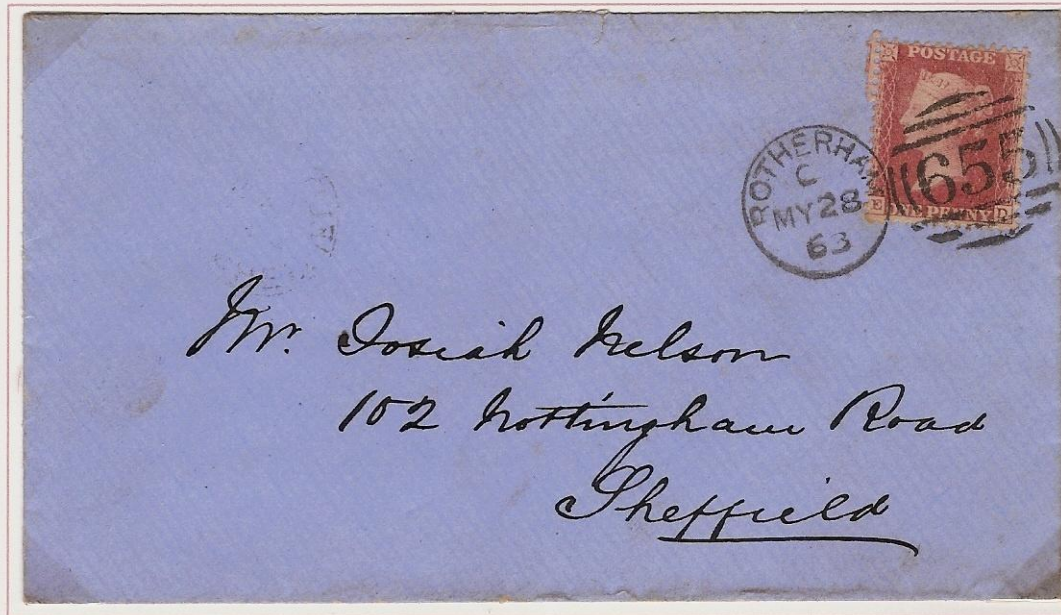 POSTAGE
ROTHERHAM
C
MY 28
63
655
E NE PENNY D
Mr. Josiah Nelson
102 Nottingham Road
Sheffield